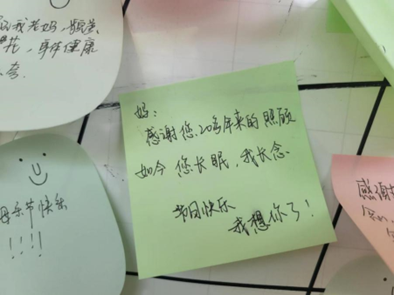 身体健康
妈:
感谢您,20多年来的照顾
如今您长眠,我长念.
节日快乐
我想你了!
母亲节快乐
!!!!
感谢